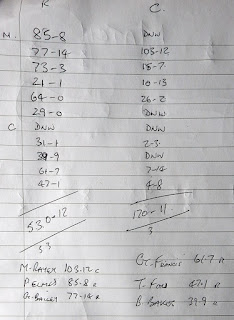 R C.
M. 85-8 DNW
77-14 103-12
73-3 18-7
21-1 10-13
64-0 26-2
29-0 DNW
C. DNW DNW
31-1 2-3
39-9 DNW
61-7 7-14
47-1 4-8
530-12 170-11
53 3
M-BAKER 103-12 C G-FRANCIS 61-7 R
85-8 R T- 47-1 R
G-BAILEY 77-14 R B-BAKER 39-9 R